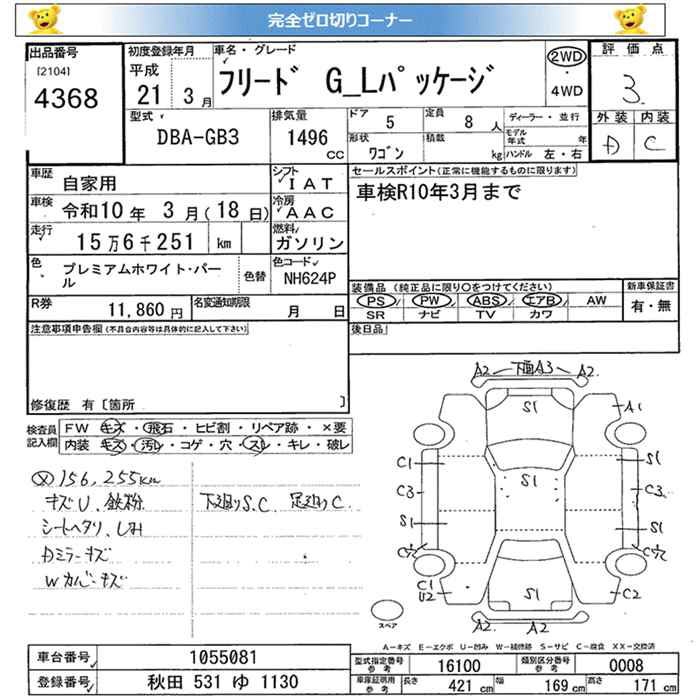 完全ゼロ切りコーナー
出品番号
[2104]
4368
初度登録年月
平成
21 3 月
車名・グレード
フリード G_Lパッケージ
2WD
・
4WD
評価点
3
外装 内装
D C
型式
DBA-GB3
排気量
1496
CC
ドア
5
定員
8 人
形状
ワゴン
積載
kg
ディーラー・並行
モデル年式 年
ハンドル 左・右
車歴
自家用
シフト
IAT
車検
令和10年 3月(18日)
冷房
AAC
走行
15万6千251 km
燃料
ガソリン
色
プレミアムホワイト・パール
色替
色コード
NH624P
R券
11,860 円
名変通知期限
月 日
セールスポイント(正常に機能するものに限ります)
車検R10年3月まで
装備品 (純正品に限り○をつけてください)
PS PW ABS エアB AW
SR ナビ TV カワ
新車保証書
有・無
後日品
注意事項申告欄(不具合内容等は具体的に記入して下さい)
修復歴 有 [箇所 ]
検査員記入欄
FW キズ・飛石・ヒビ割・リペア跡・×要
内装 キズ・汚レ・コゲ・穴・スレ・キレ・破レ
156,255km
キズU、鉄粉
シートヘタリ、LH
Dミラーキズ
Wカバーキズ
下廻りS.C 足廻りC
A2 下面A3 A2
S1
A1
C1 S1
S1
C3 C3
S1 S1
C穴 C穴
C1
U2
S1
C2
A2 A2
スペア
A-キズ E-エクボ U-凹み W-補修跡 S-サビ C-腐食 XX-交換済
車台番号
1055081
登録番号
秋田 531 ゆ 1130
型式指定番号
参考
16100
類別区分番号
参考
0008
車庫証明用
参考
長さ
421 cm
幅
169 cm
高さ
171 cm